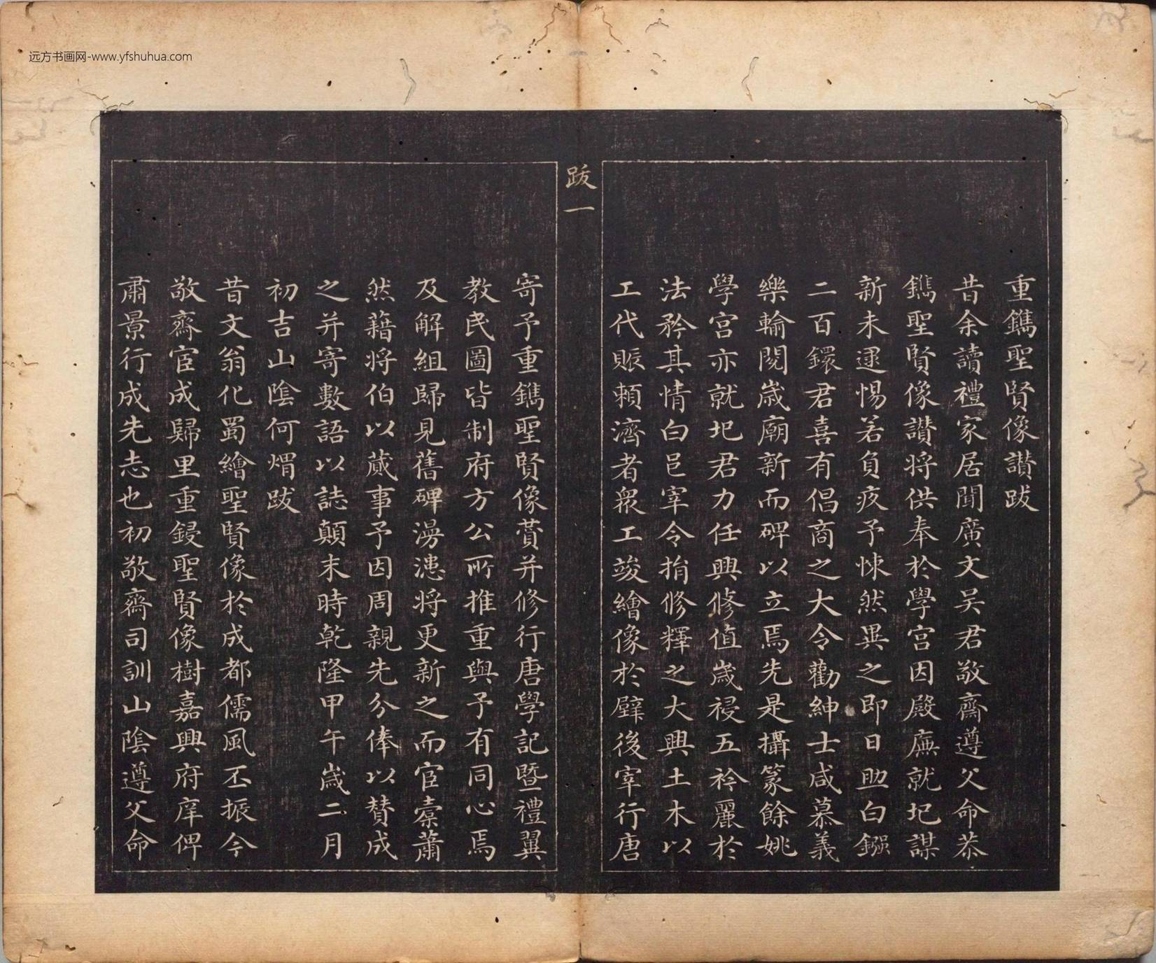 远方书画网-www.yfshuhua.com
跋一
重鐫聖賢像讃跋
昔余讀禮家居聞廣文吴君敬齋遵父命恭
鐫聖賢像讃将供奉於學宫因殿廡就圯謀
新未遑惕若負疚予悚然異之即日助白鏹
二百鐶君喜有倡商之大令勸紳士咸慕義
樂輸閱嵗廟新而碑以立焉先是攝篆餘姚
學宫亦就圯君力任興修值嵗祲五衿麗於
法矜其情白邑宰令捐修釋之大興土木以
工代賑頼濟者衆工竣繪像於壁後宰行唐
寄予重鐫聖賢像賛并修行唐學記暨禮翼
教民圖皆制府方公所推重與予有同心焉
及解組歸見舊碑漫漶将更新之而宦橐蕭
然藉将伯以蕆事予因周親先分俸以賛成
之并寄數語以誌顛末時乾隆甲午嵗二月
初吉山陰何煟跋
昔文翁化蜀繪聖賢像於成都儒風丕振今
敬齋宦成歸里重鋟聖賢像樹嘉興府庠俾
肅景行成先志也初敬齋司訓山陰遵父命